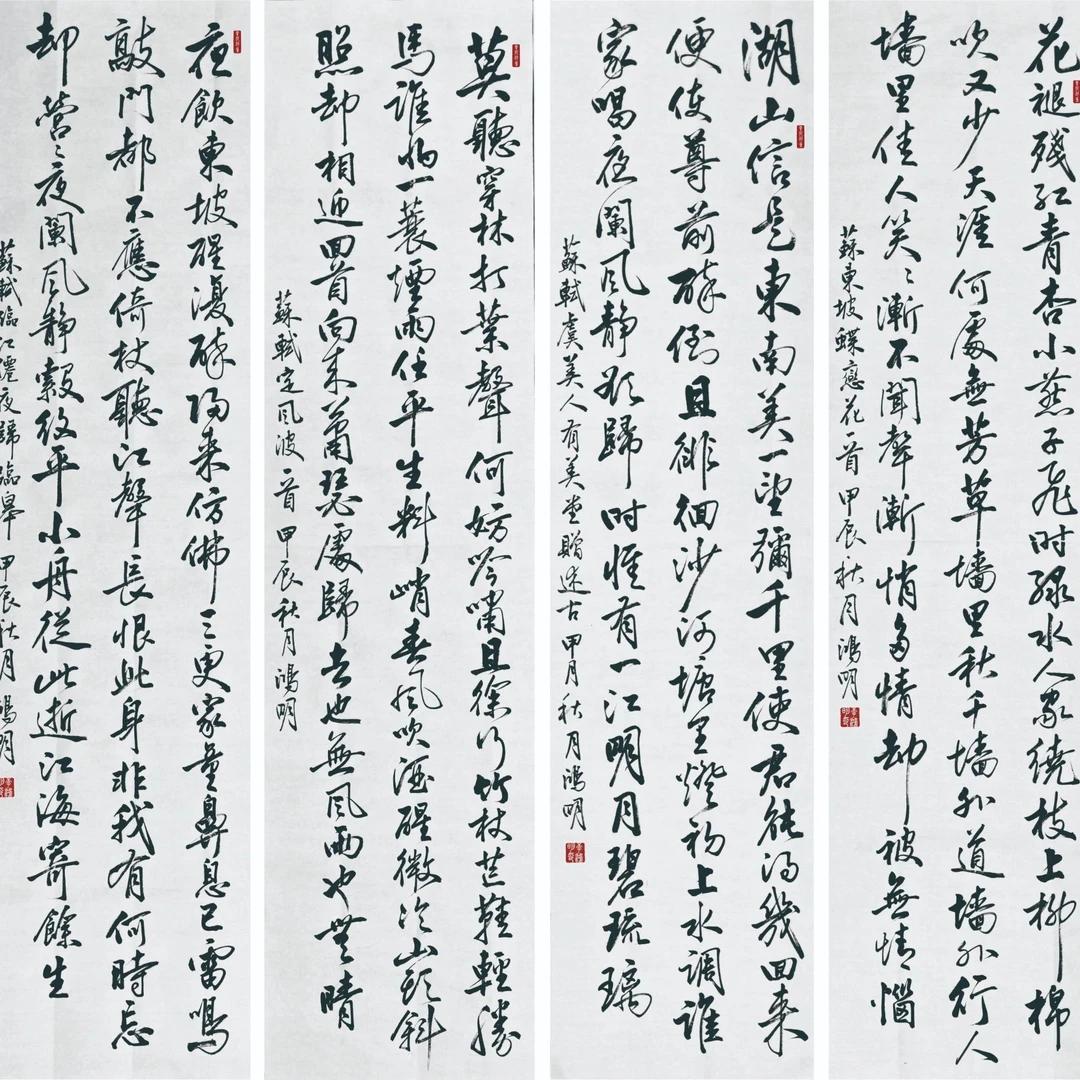 花褪残红青杏小燕子飛时绿水人家繞枝上柳棉
吹又少天涯何處無芳草墻里秋千墻外道墻外行人
墻里佳人笑〻漸不聞聲漸悄多情却被無情惱
蘇東坡蝶戀花一首 甲辰秋月鴻明
湖山信是東南美一望彌千里使君能得幾回來
便使尊前醉倒且徘徊沙河塘里燈初上水調誰
家唱夜闌風静欲歸时惟有一江明月碧琉璃
蘇軾虞美人有美堂贈述古甲月秋月鴻明
莫聽穿林打葉聲何妨吟嘯且徐行竹杖芒鞋輕勝
馬誰怕一蓑煙雨任平生料峭春風吹酒醒微冷山頭斜
照却相迎回首向來蕭瑟處歸去也無風雨也無晴
蘇軾定風波一首 甲辰秋月鴻明
夜飲東坡醒復醉歸來仿佛三更家童鼻息已雷鳴
敲門都不應倚杖聽江聲長恨此身非我有何時忘
却營〻夜闌風静縠紋平小舟從此逝江海寄餘生
蘇軾臨江僊夜歸臨皋 甲辰秋月鴻明